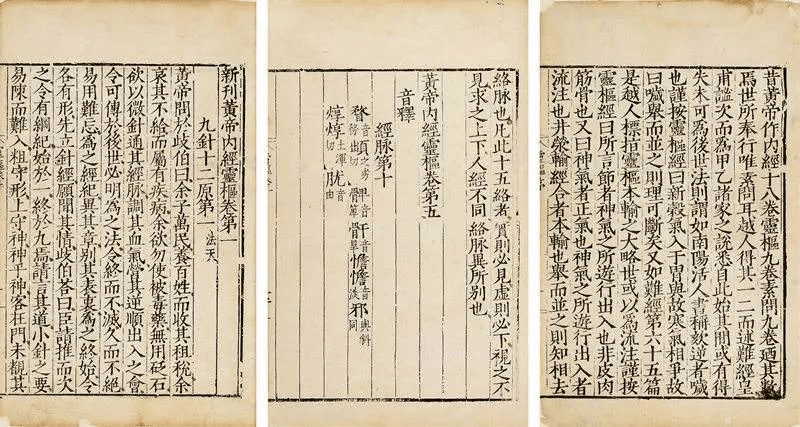 昔黃帝作內經十八卷靈樞九卷素問九卷廼其數
焉世所奉行唯素問耳越人得其一二而述難經皇
甫謐次而為甲乙諸家之說悉自此始其間或有得
失未可為後世法則謂如南陽活人書稱欬逆者噦
也謹按靈樞經曰新穀氣入于胃與故寒氣相爭故
曰噦舉而並之則理可斷矣又如難經第六十五篇
是越人標指靈樞本輸之大略世或以為流注謹按
靈樞經曰所言節者神氣之所遊行出入也非皮肉
筋骨也又曰神氣者正氣也神氣之所遊行出入者
流注也井滎輸經合者本輸也舉而並之則知相去
絡脉也凡此十五絡者實則必見虛則必下視之不
見求之上下人經不同絡脉異所別也
黃帝內經靈樞卷第五
音釋
經脉第十
憺憺音淡邪音與斜同
焞焞土渾切
新刊黃帝內經靈樞卷第一
九針十二原第一 法天
黃帝問於歧伯曰余子萬民養百姓而收其租稅余
哀其不給而屬有疾病余欲勿使被毒藥無用砭石
欲以微針通其經脉調其血氣營其逆順出入之會
令可傳於後世必明為之法令終而不滅久而不絕
易用難忘為之經紀異其章別其表裏為之終始令
各有形先立針經願聞其情歧伯荅曰臣請推而次
之令有綱紀始於一終於九焉請言其道小針之要
易陳而難入粗守形上守神神乎神客在門未覩其